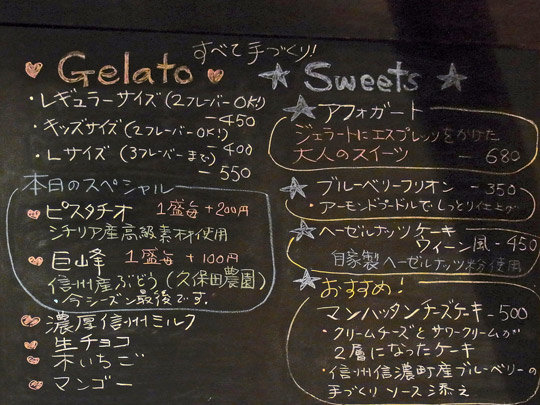 すべて手づくり!
Gelato
・レギュラーサイズ(2フレーバーOK!)
-450
・キッズサイズ(2フレーバーOK!)
-400
・Lサイズ(3フレーバーまで)
-550
本日のスペシャル
ピスタチオ 1盛毎+200円
シチリア産高級素材使用
巨峰 1盛毎+100円
信州産ぶどう(久保田農園)
・今シーズン最後です。
濃厚信州ミルク
生チョコ
木いちご
マンゴー
Sweets
アフォガート
ジェラートにエスプレッソをかけた
大人のスイーツ -680
ブルーベリーフリオン -350
・アーモンドプードルでしっとり仕上げ
ヘーゼルナッツケーキ
ウィーン風-450
自家製ヘーゼルナッツ粉使用
おすすめ!
マンハッタンチーズケーキ-500
・クリームチーズとサワークリームが
2層になったケーキ
・信州信濃町産ブルーベリーの
手づくりソース添え